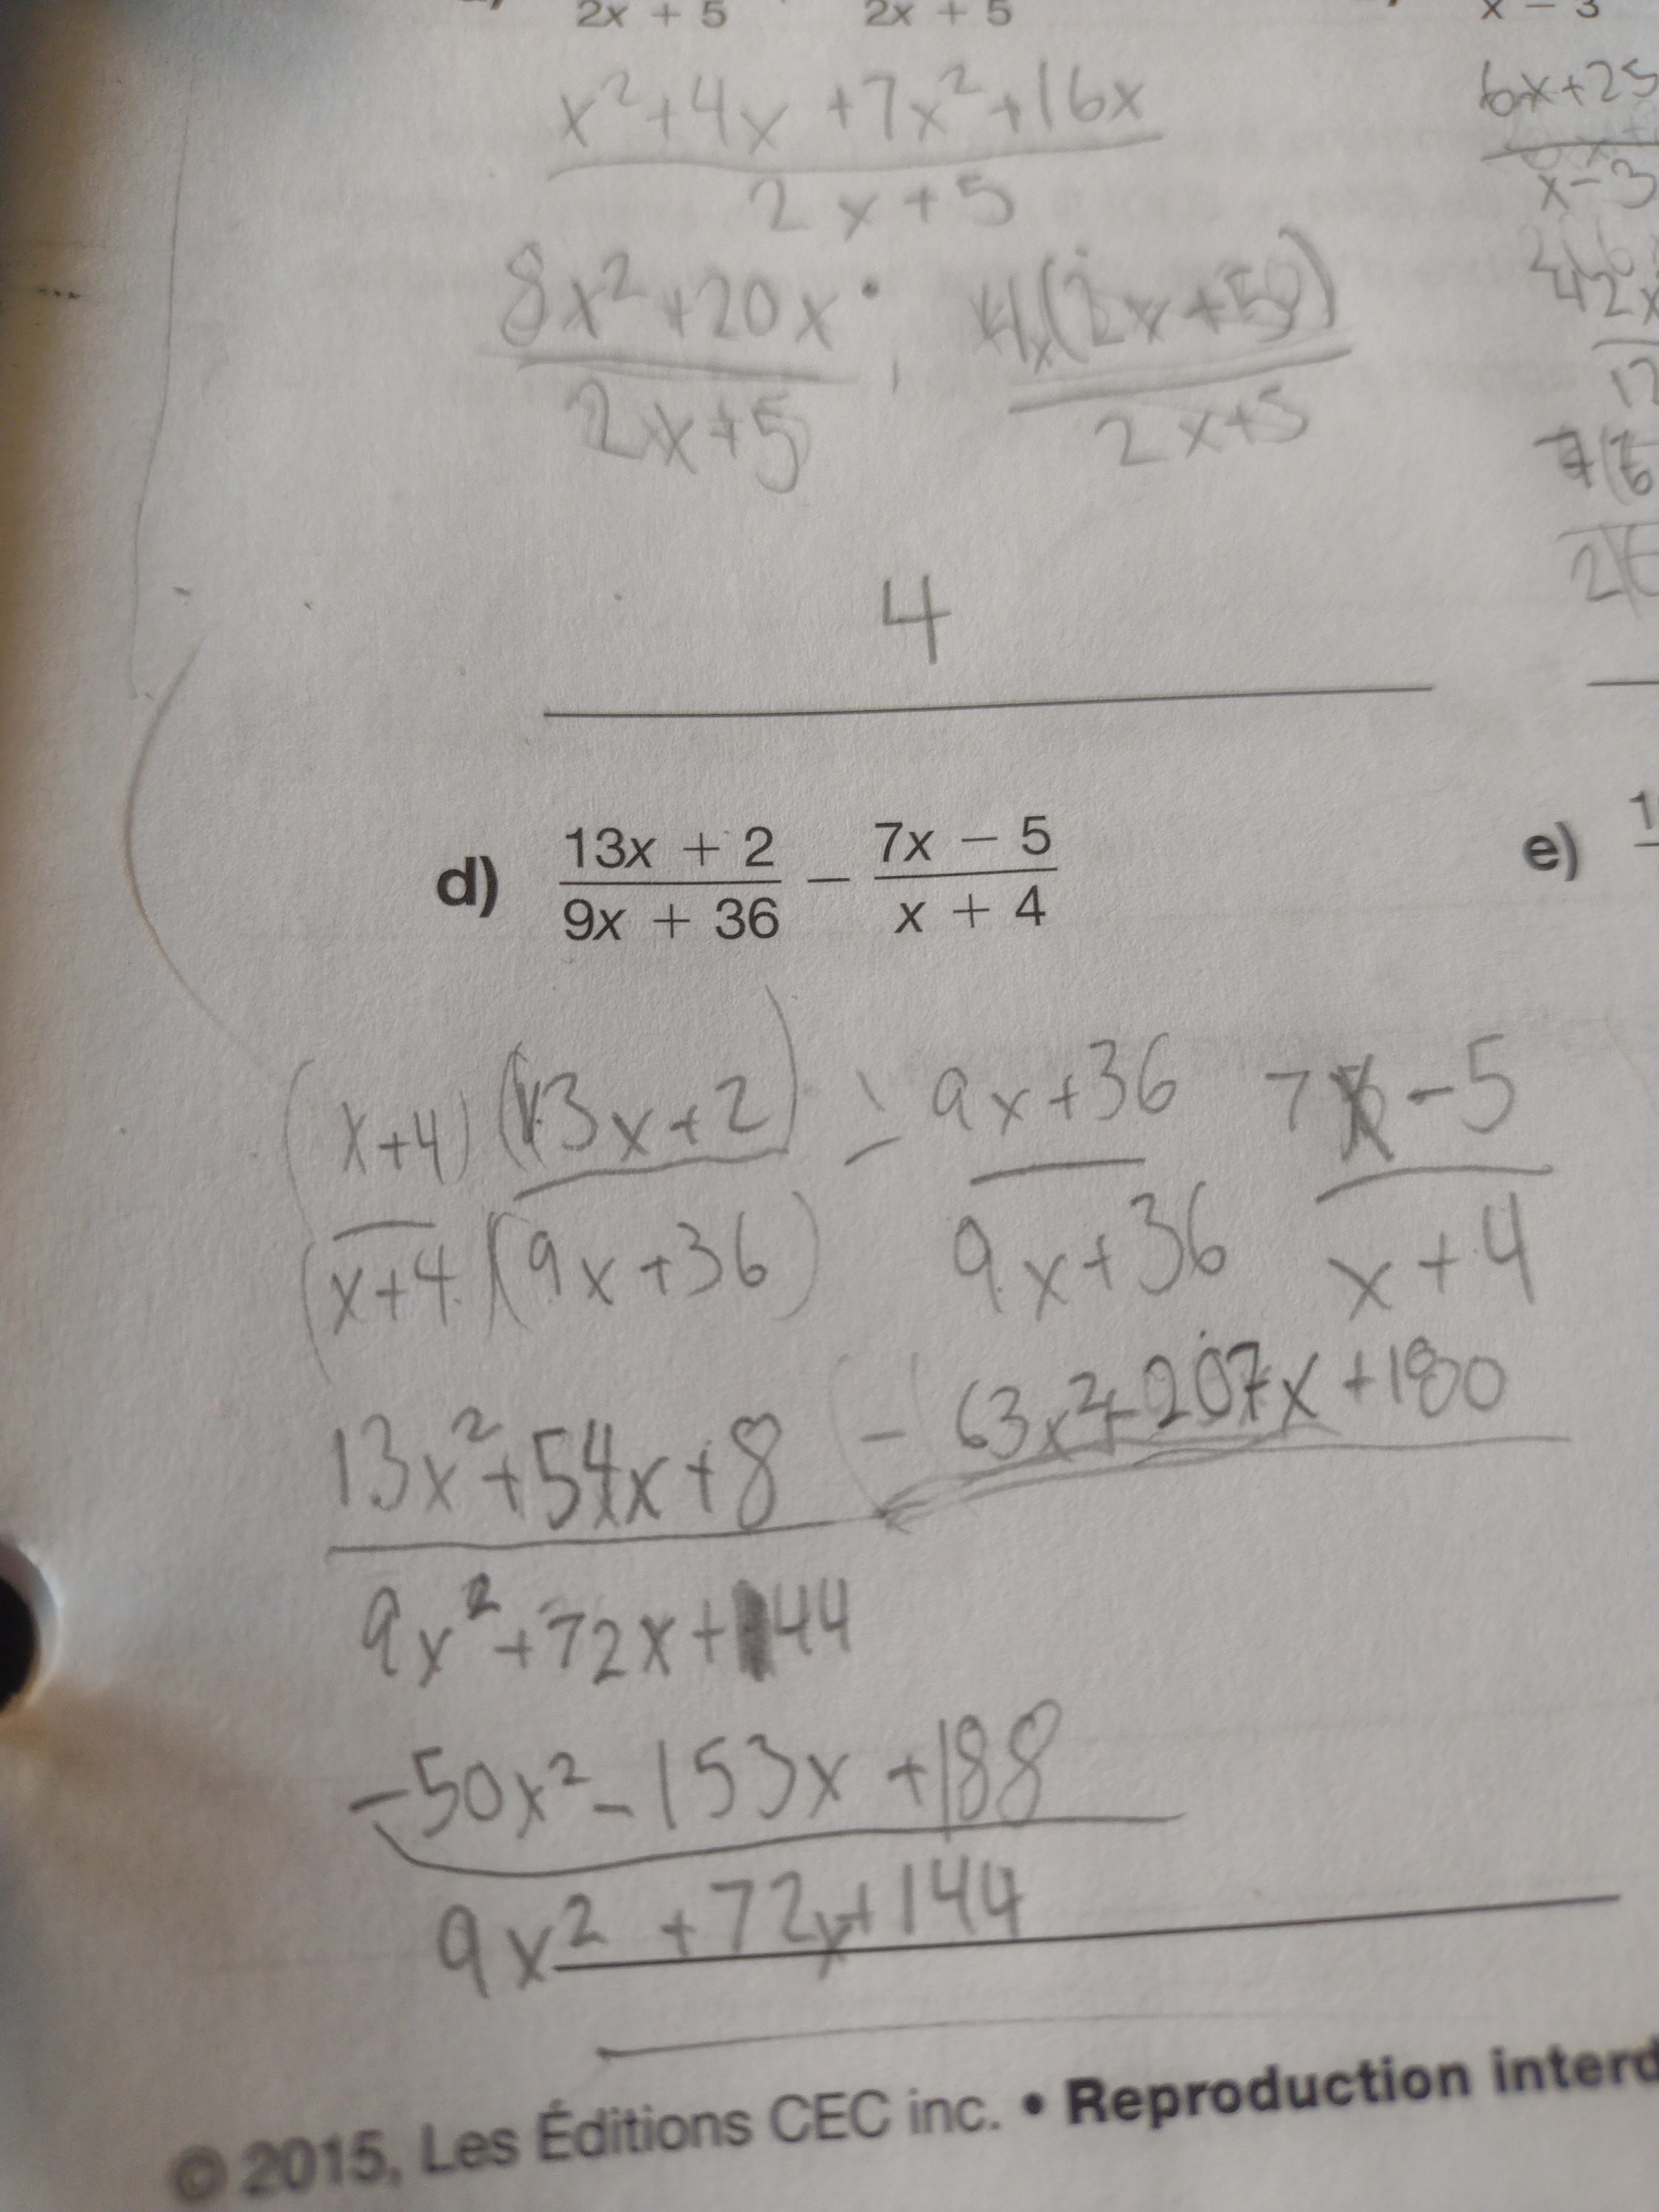 2x + 5 2x + 5
x - 3
x²+4x +7x²+16x
2x+5
6x+25
x-3
8x²+20x 4x(2x+5)
2x+5 2x+5
4
d) 13x + 2 − 7x − 5
9x + 36 x + 4
e)
(x+4)(13x+2) - 9x+36 7x-5
(x+4)(9x+36) 9x+36 x+4
13x²+54x+8 - 63x²+207x+180
9x²+72x+144
-50x²-153x+188
9x²+72x+144
© 2015, Les Éditions CEC inc. • Reproduction interd